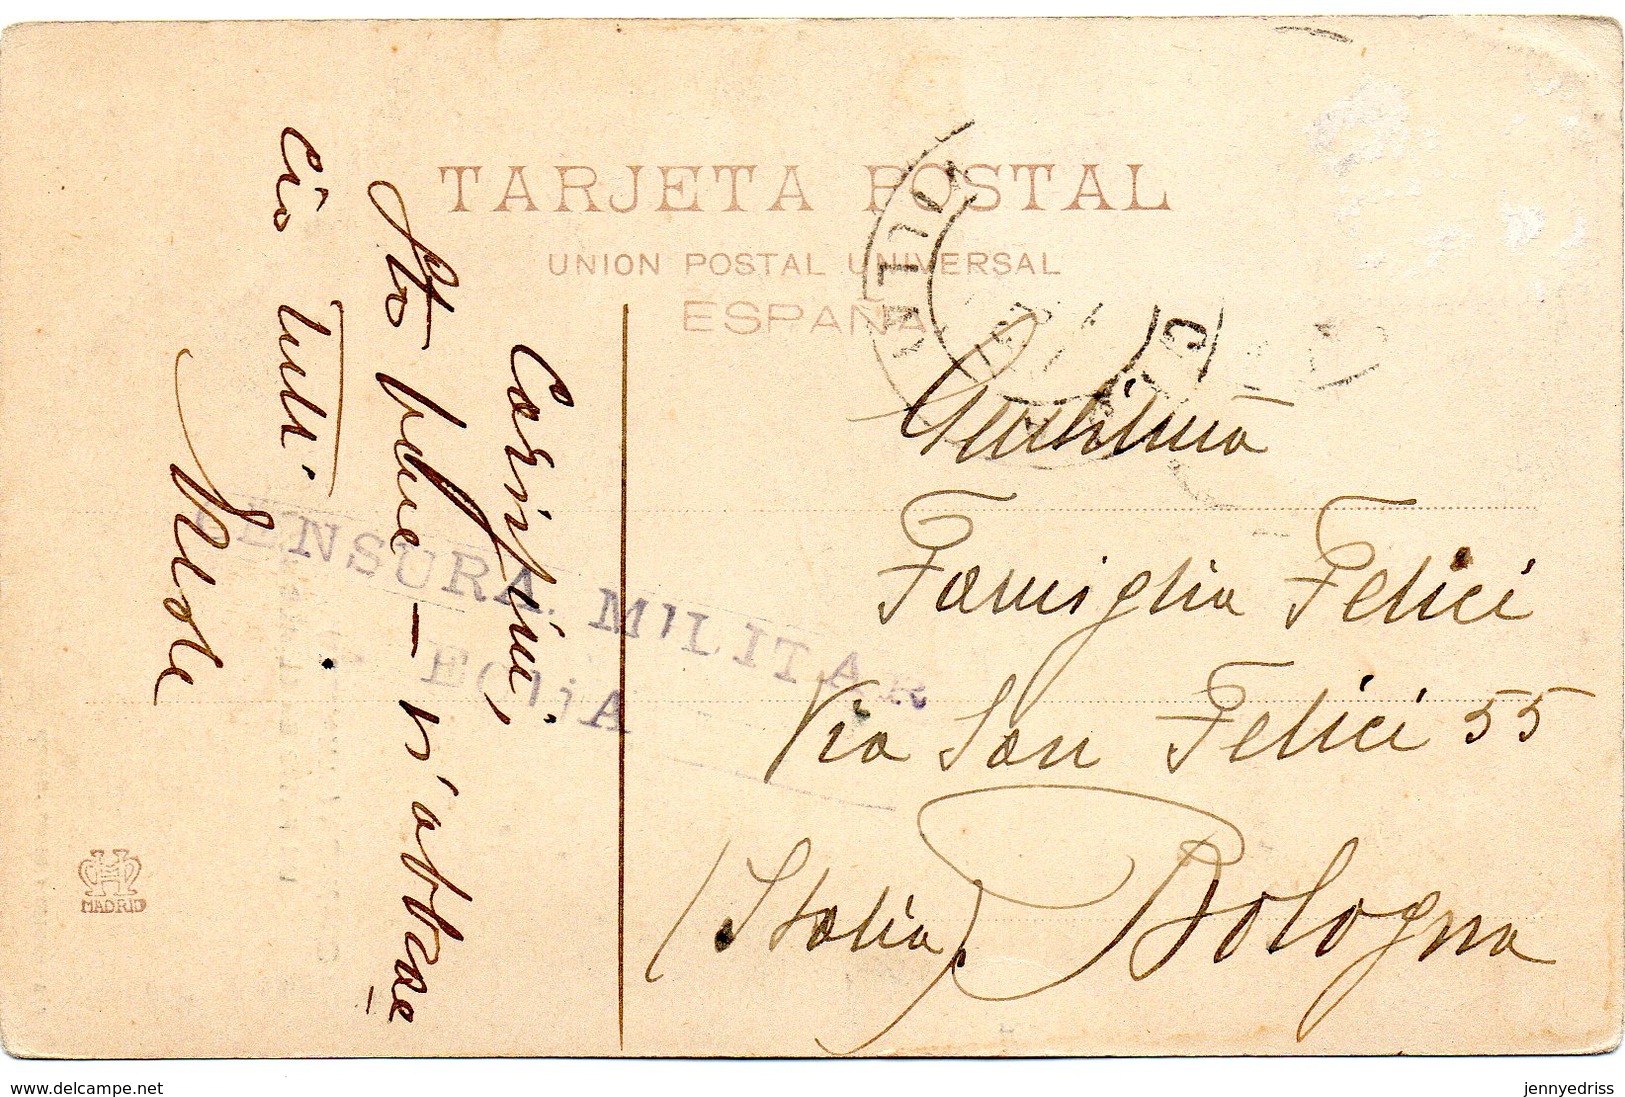 TARJETA POSTAL
UNION POSTAL UNIVERSAL
ESPAÑA
Carissimi,
Sto bene — v'abbraccio
tutti
CENSURA MILITAR
ECIJA
Gentilissima
Famiglia Felici
Via San Felici 55
(Italia) Bologna
MADRID
www.delcampe.net
jennyedriss